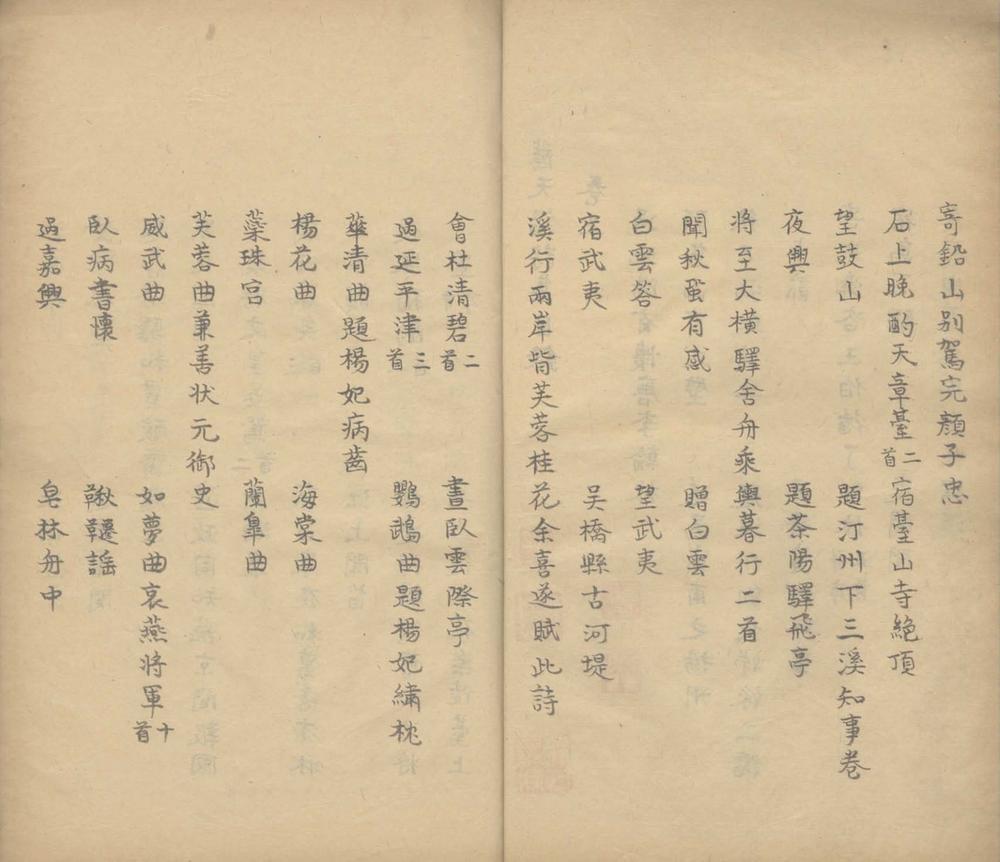 寄鉛山别駕完顏子忠
石上晚酌天章臺二首 宿臺山寺絶頂
望鼓山 題汀州下三溪知事卷
夜興 題茶陽驛飛亭
將至大橫驛舍舟乘輿暮行二首
聞秋蛩有感 贈白雲
白雲答 望武夷
宿武夷 吴橋縣古河堤
溪行兩岸皆芙蓉桂花余喜遂賦此詩
會杜清碧二首 晝臥雲際亭
過延平津三首 鸚鵡曲題楊妃繡枕
華清曲題楊妃病齒
楊花曲 海棠曲
蘂珠宫 蘭臯曲
芙蓉曲兼善状元御史
威武曲 如夢曲哀燕將軍十首
臥病書懷 鞦韆謡
過嘉興 皂林舟中